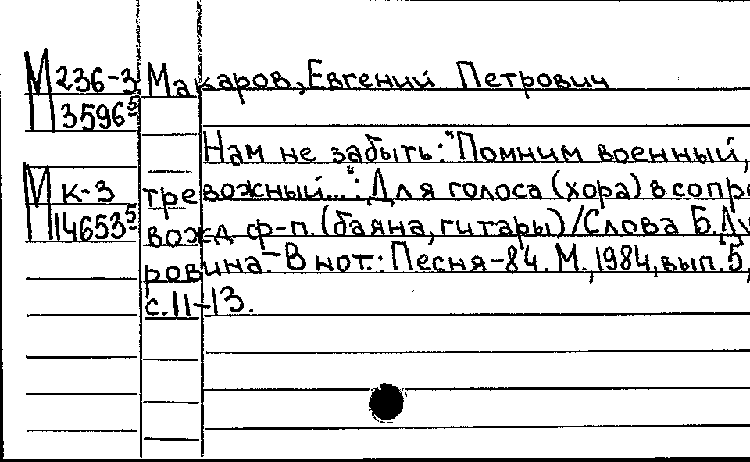 М 236-3 Макаров, Евгений Петрович
3596⁵
Нам не забыть: "Помним военный,
М к-3 тревожный...": Для голоса (хора) в сопро
14653⁵ вожд. ф-п. (баяна, гитары) / Слова Б. Ду
бровина. - В нот.: Песня-84. М., 1984, вып. 5,
с. 11-13.